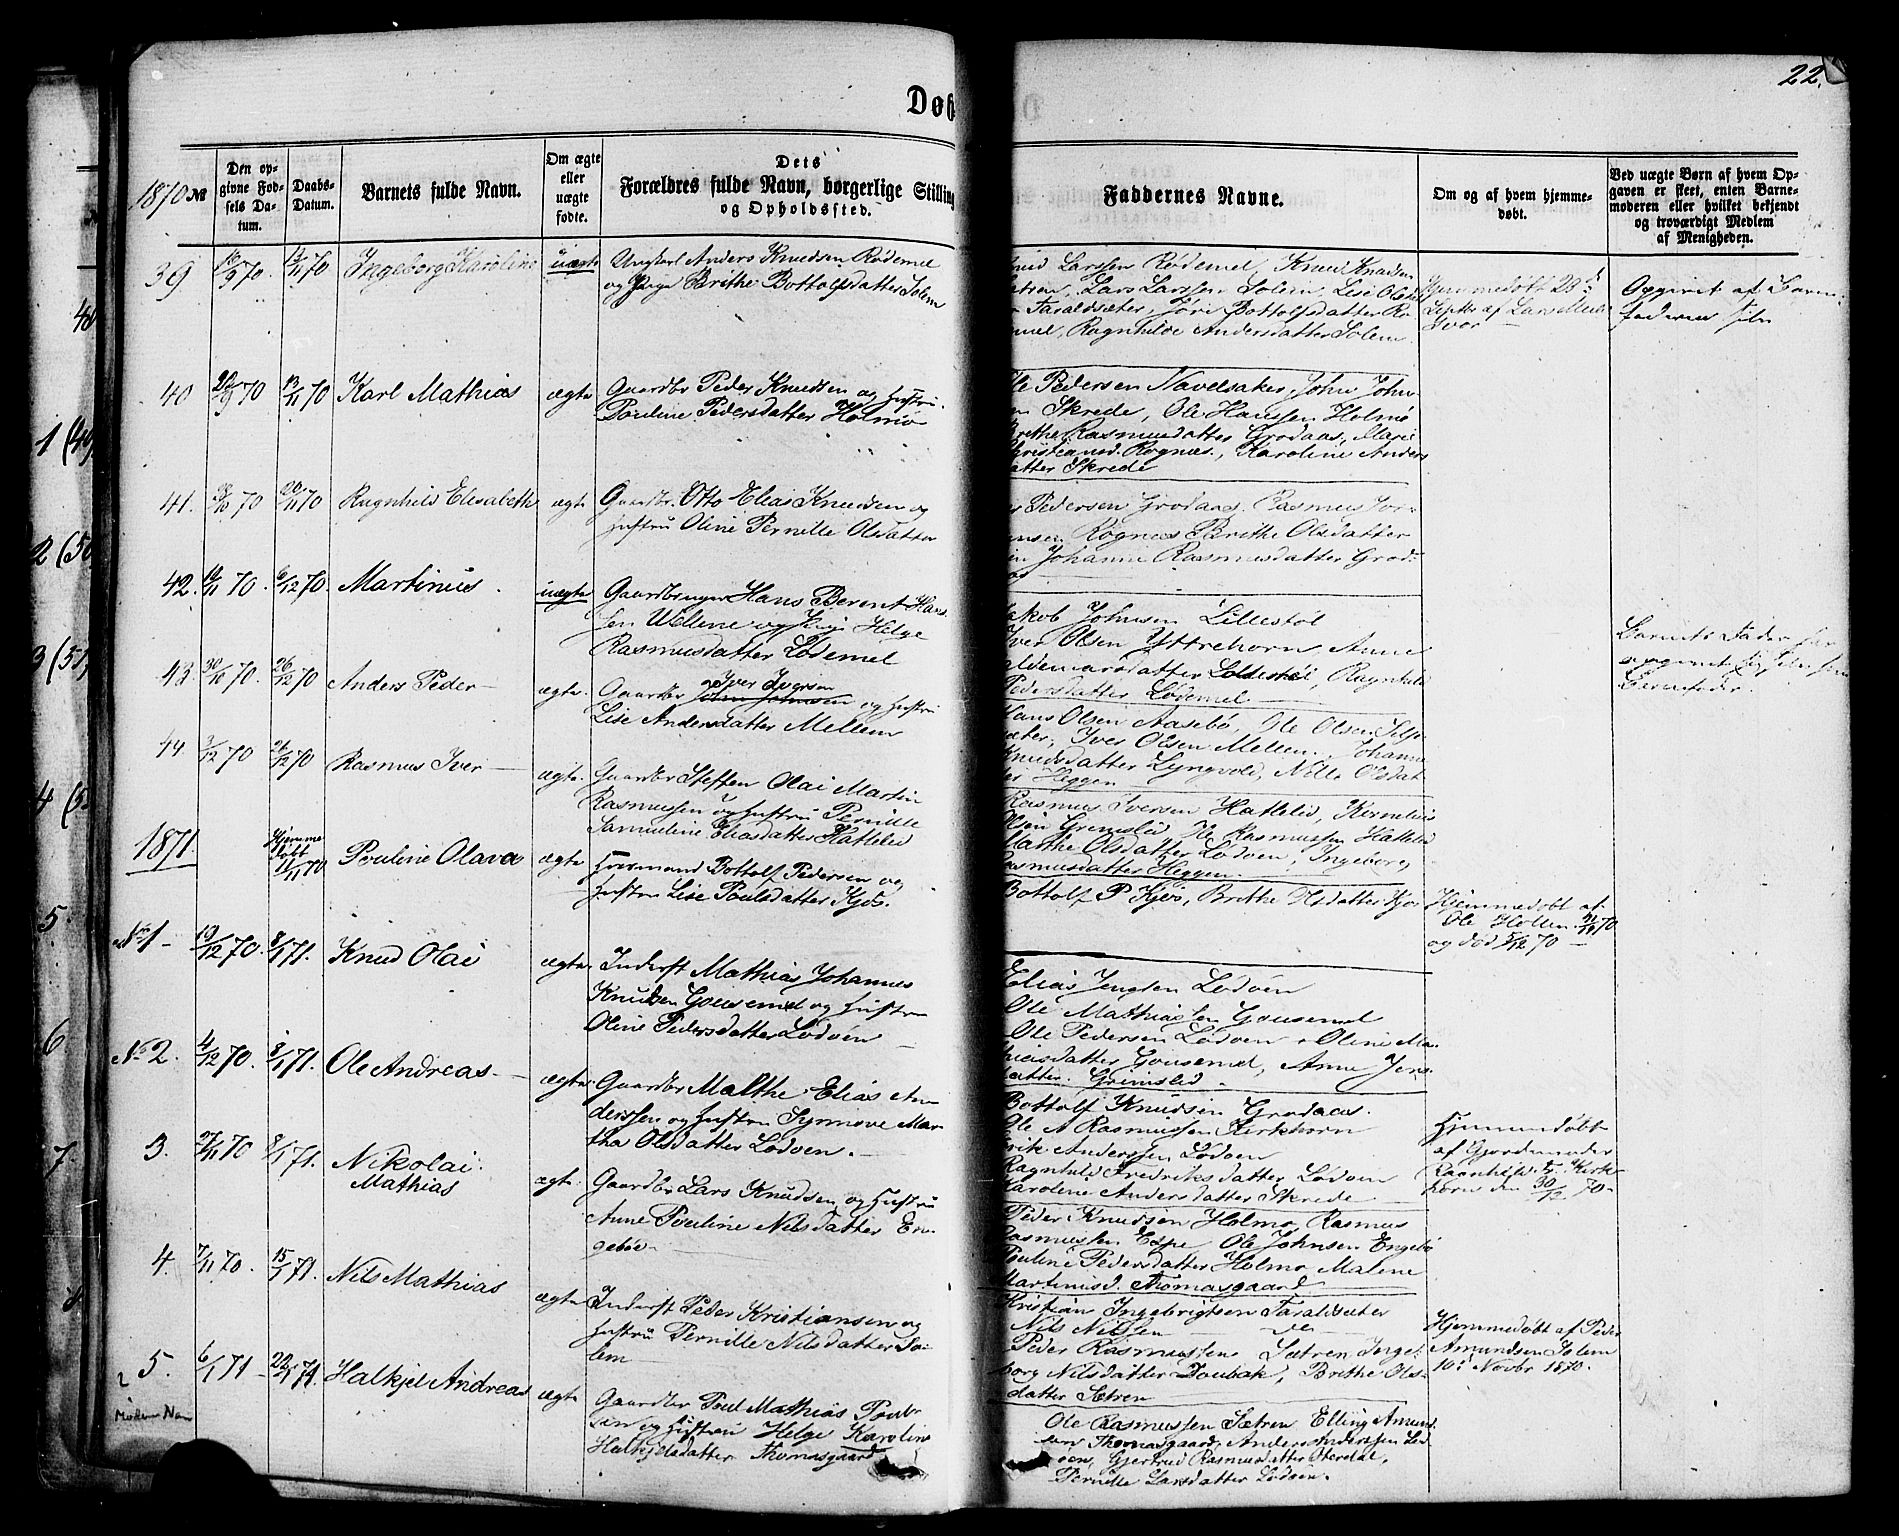 22.
Døb
1870 №
Den op-
givne Fød-
sels Da-
tum.
Daabs-
Datum.
Barnets fulde Navn.
Om ægte
eller
uægte
fødte.
Dets
Forældres fulde Navn, borgerlige Stilling
og Opholdssted.
Faddernes Navne.
Om og af hvem hjemme-
døbt.
Ved uægte Børn af hvem Op-
gaven er skeet, enten Barne-
moderen eller hvilket bekjendt
og troværdigt Medlem
af Menigheden.
39 70 70 Ingeborg Karoline uægte Ungkarl Anders Knudsen Rødemel
og Pige Brithe Bottolfsdatter Solem
Larssen Rødemel, Knud Knudsen
Sætren, Lars Larssen Solem, Lise Ols
Taraldsæter Jøri Bottolfsdatter
Ragnhilde Andersdatter Solem
Hjemmedøbt 23d
Septbr af Lars
Opgivet af Barne-
faderen
40 70 13/11 70 Karl Mathias ægte Gaardbr Peder Knudsen og Hustru
Pouline Pedersdatter Holmø
Ole Pedersen Navelsaker, John John-
sen Skrede, Ole Hanssen Holmø
Brethe Rasmusdatter Grodaas, Marie
Christiansd. Rognes, Karoline Anders
datter Skrede
41. 70 20/11 70 Ragnhild Elisabeth ægte Gaardbr. Otto Elias Knudsen og
Hustru Oline Pernille Olsdatter
Pedersen Grodaas. Rasmus
Rognes Brithe Olsdatter
Johanne Rasmusdatter Grod-
42. 70 6/12 70 Martinus uægte Gaardbruger Hans Berent Hans
sen Wellene og Pige Helge
Rasmusdatter Lødemel
Jakob Johnsen Lillestøl
Iver Olsen Yttrehorn, Anne
Lillestøl, Ragnhild
Pedersdatter Lødemel
Barnets Fader har
Barnefader.
43. 30/10 70. 26/12 70 Anders Peder ægte. Gaardbr Iver Iversen og Hustru
Lise Andersdatter Mellem
Hans Olsen Aasebø, Ole Olsen
Iver Olsen Mellem. Johanne
Knudsdatter Lyngvold, Nille Olsdat
ter Heggen
44. 3/12 70 26/12 70 Rasmus Iver ægte. Gaardbr Steffen Olai Martin
Rasmussen og Hustru Pernille
Samueline Eliasdatter Hatteled
Rasmus Iversen Hatleled, Kornelius
Olsen Grimsled, Ole Rasmussen Hatleli
Marthe Olsdatter Lødøen, Ingeborg
Rasmusdatter Heggen
1871.
Hjemme
døbt
11/11 70 Pouline Olava ægte Huusmand Bottolf Pedersen og
Hustru Lise Poulsdatter Kjøs.
Bottolf P Kjøs, Brithe Olsdatter Kjøs
Hjemmedøbt af
Ole Hollen 11/11 70
og død 5/12 70
No 1 19/12 70. 8/1 71. Knud Olai ægte. Inderst Mathias Johannes
Knudsen Gousemel og Hustru
Oline Pedersdatter Lødøen
Elias Jensen Lødøen
Ole Mathiassen Gousemel
Ole Pedersen Lødøen Oline Ma-
thiasdatter Gousemel, Anne Jens
datter. Grimsled.
No 2. 4/12 70. 8/1 71. Ole Andreas ægte. Gaardbr Malthe Elias An
derssen og Hustru Synnøve Mar
tha Olsdatter Lødøen.
Bottolf Knudsen Grodaas.
Ole A Rasmussen Kirkhorn
Erik Anderssen Lødøen
Ragnhild Fredriksdatter Lødøen
Karoline Andersdatter Skrede
Hjemmedøbt
af Gjordemoder
Ragnhild Kirk
horn den 30/12 70
3. 27/11 70 8/1 71. Nikolai
Mathias ægte. Gaardbr Lars Knudsen og Hustru
Anne Pouline Nilsdatter En
gebøe
Peder Knudsen Holmø, Rasmus
Rasmussen Espe Ole Johnsen Engebø
Pouline Pedersdatter Holmø Malene
Martinusd. Thomasgaard
4. 7/11 70. 15/1 71. Nils Mathias ægte Inderst Peder Kristiansen og
Hustru Pernille Nilsdatter So-
lem
Kristian Ingebrigtsen Taraldsæter
Nils Nilssen
Peder Rasmussen Sætren Inge-
borg Nilsdatter, Brithe Ols-
datter Sætren
Hjemmedøbt af Peder
Amundsen Solem
10d Novbr 1870.
5. 6/1 71 22/1 71. Halkjel Andreas ægte Gaardbr Poul Mathias Pouls
sen og Hustru Helge Karoline
Halkjelsdatter Thomasgaard
Ole Rasmussen Sætren Elling Amund
sen Thomasgaard, Anders Anderssen Lød
øen, Gjertrud Rasmusdatter,
Pernille Larsdatter Lødøen.
48
1 (49)
2 (50
3 (51)
4 (5
5.
6
7.
8